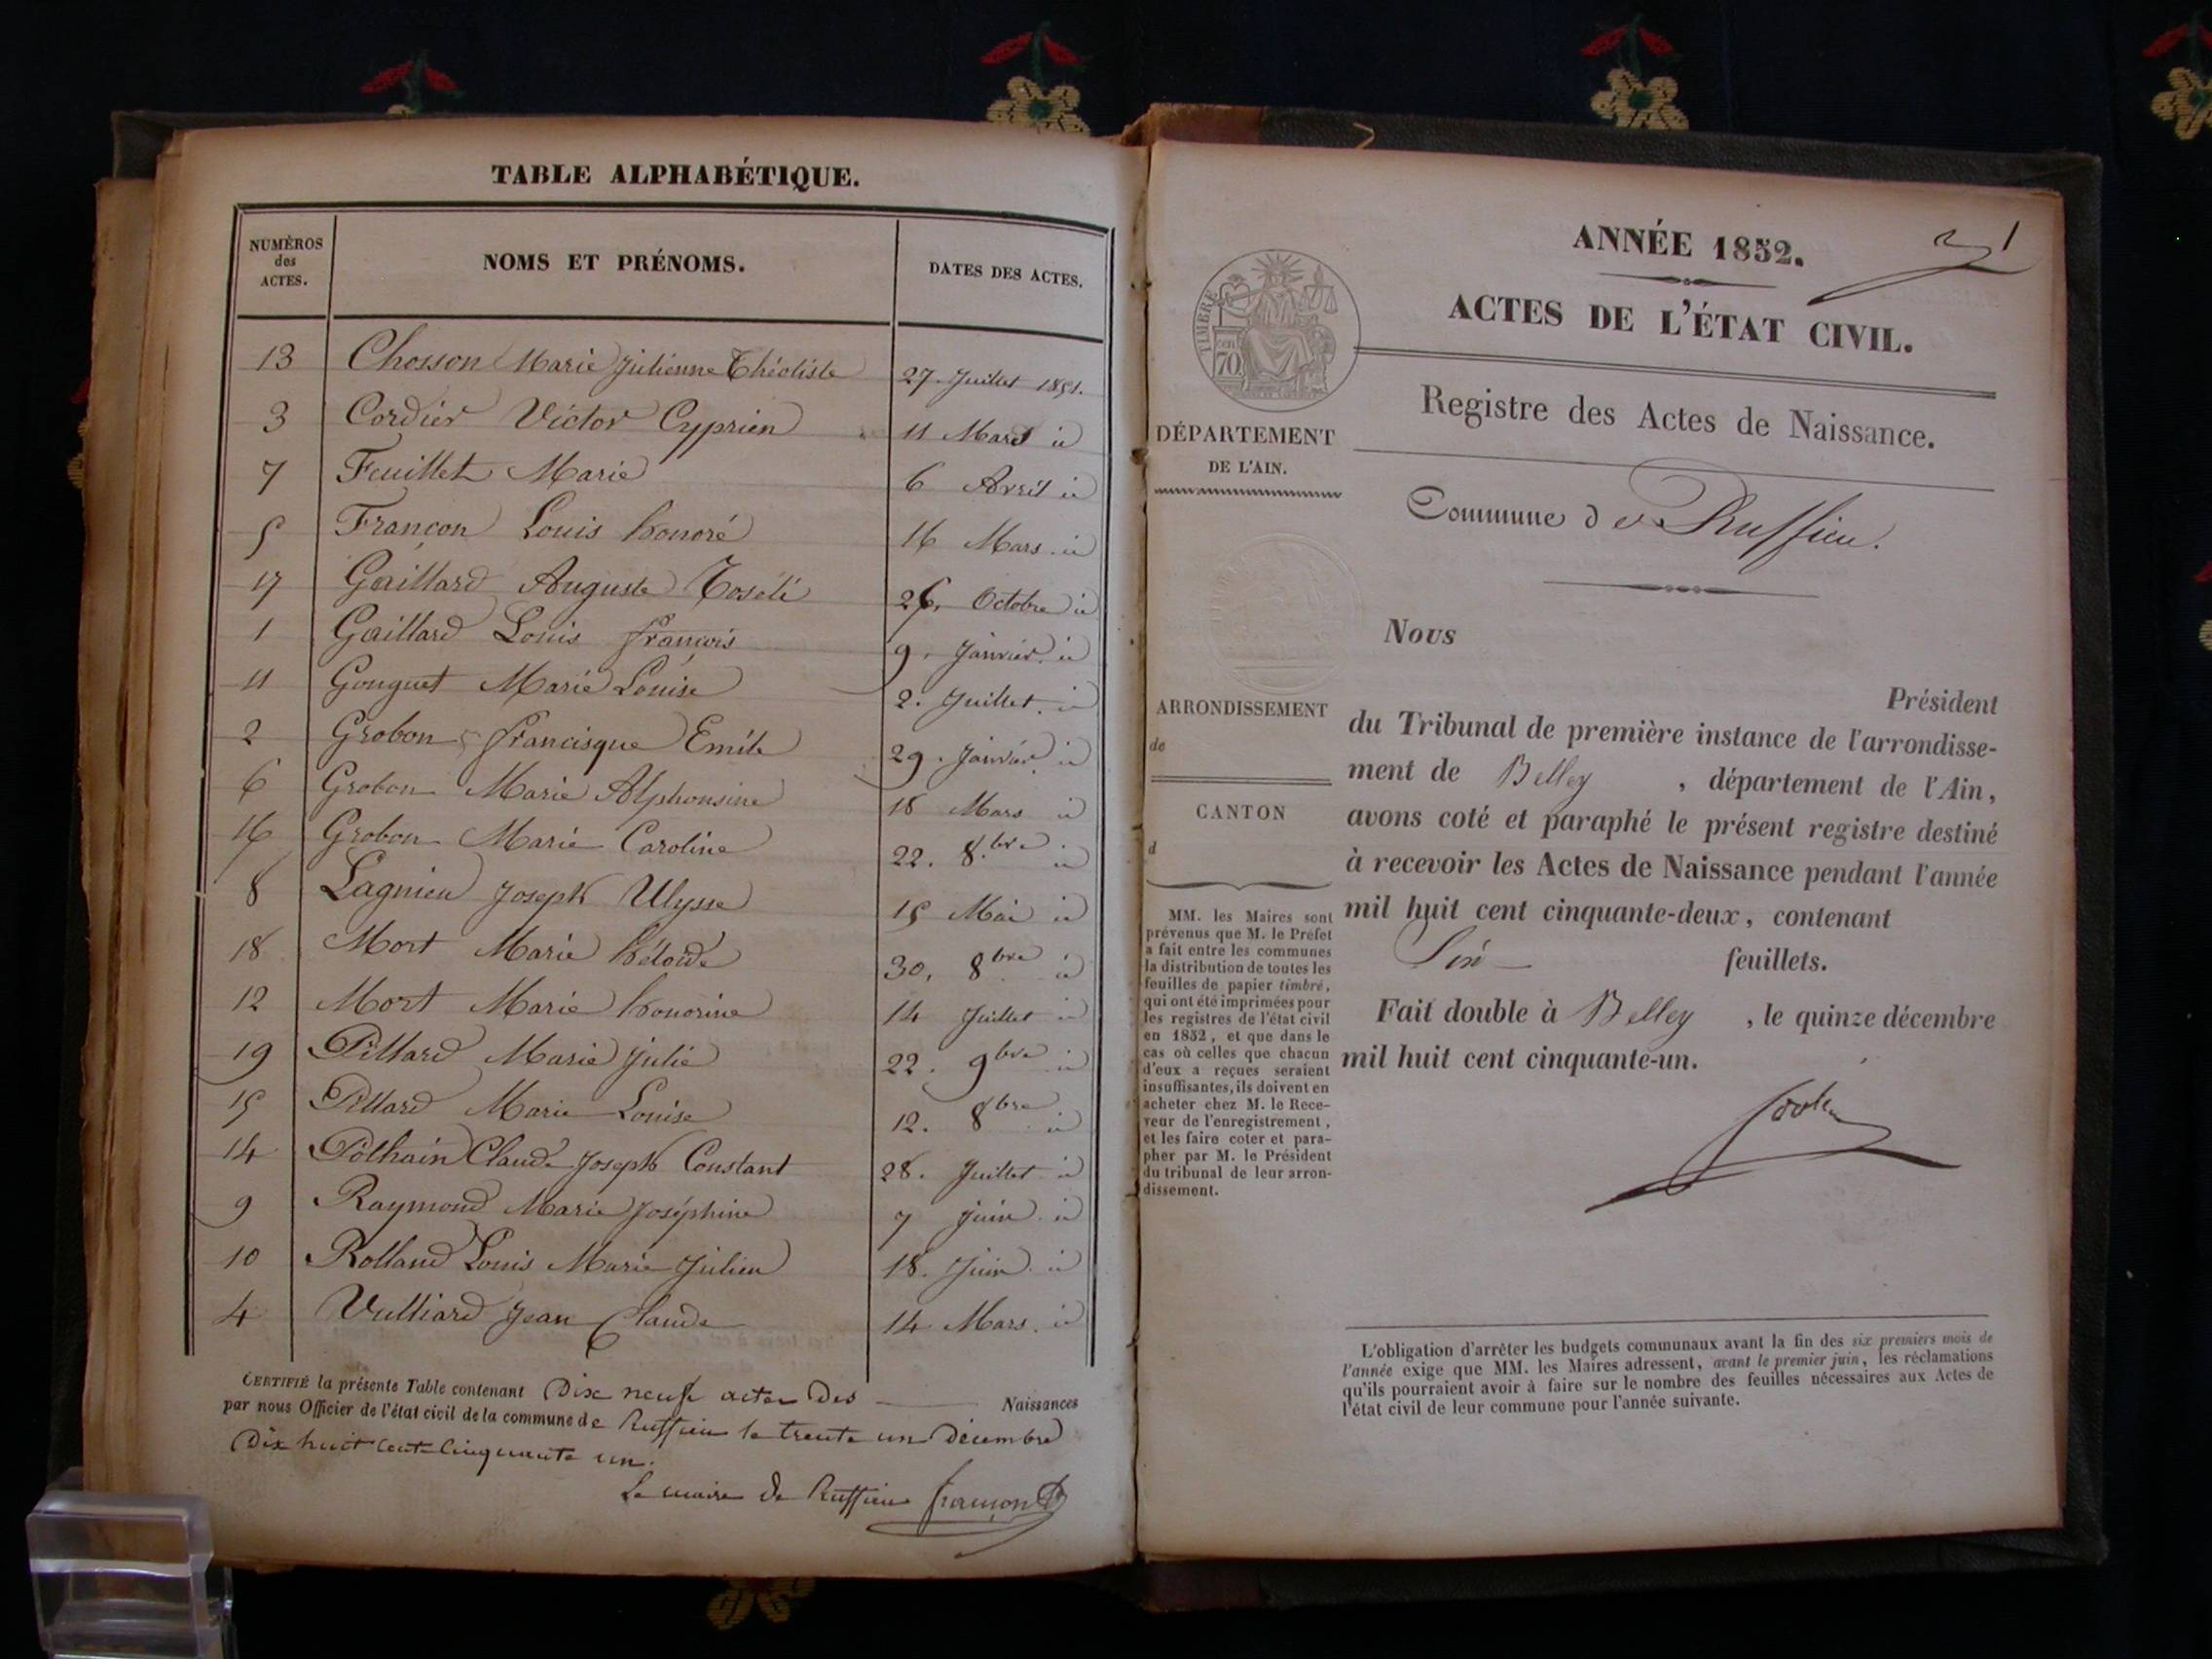 TABLE ALPHABÉTIQUE.
NUMÉROS des ACTES.
NOMS ET PRÉNOMS.
DATES DES ACTES.
13 Chosson Marie Julienne Théotiste 27. Juillet 1851.
3 Cordier Victor Cyprien 11 Mars id
7 Feuillet Marie 6 Avril id
5 Françon Louis honoré 16 Mars id
17 Gaillard Auguste 26, Octobre id
1 Gaillard Louis françois 9, Janvier id
11 Gonguet Marie Louise 2. Juillet. id
2 Grobon francisque Emile 29. Janvier id
6 Grobon Marie Alphonsine 18 Mars id
16 Grobon Marie Caroline 22. 8.bre id
8 Lagnieu Joseph Ulysse 15 Mai id
18 Mort Marie héloïde 30, 8bre id
12 Mort Marie honorine 14 Juillet id
19 Pillard Marie Julie 22. 9bre id
15 Pillard Marie Louise 12. 8bre id
14 Pothain Claude Joseph Constant 28. Juillet id
9 Raymond Marie Joséphine 7 juin id
10 Rolland Louis Marie Julien 18. Juin id
4 Vulliard Jean Claude 14 Mars. id
CERTIFIÉ la présente Table contenant Dix neuf actes Des Naissances
par nous Officier de l'état civil de la commune de Ruffieu le trente un Décembre
Dix huit cent Cinquante un.
Le maire de Ruffieu françon
1
ANNÉE 1852.
ACTES DE L'ÉTAT CIVIL.
TIMBRE
70
Registre des Actes de Naissance.
DÉPARTEMENT
DE L'AIN.
Commune de Ruffieu.
ARRONDISSEMENT
de
CANTON
d
MM. les Maires sont
prévenus que M. le Préfet
a fait entre les communes
la distribution de toutes les
feuilles de papier timbré,
qui ont été imprimées pour
les registres de l'état civil
en 1852, et que dans le
cas où celles que chacun
d'eux a reçues seraient
insuffisantes, ils doivent en
acheter chez M. le Rece-
veur de l'enregistrement,
et les faire coter et para-
pher par M. le Président
du tribunal de leur arron-
dissement.
Nous
Président
du Tribunal de première instance de l'arrondisse-
ment de Belley, département de l'Ain,
avons coté et paraphé le présent registre destiné
à recevoir les Actes de Naissance pendant l'année
mil huit cent cinquante-deux, contenant
Six feuillets.
Fait double à Belley, le quinze décembre
mil huit cent cinquante-un.
L'obligation d'arrêter les budgets communaux avant la fin des six premiers mois de
l'année exige que MM. les Maires adressent, avant le premier juin, les réclamations
qu'ils pourraient avoir à faire sur le nombre des feuilles nécessaires aux Actes de
l'état civil de leur commune pour l'année suivante.